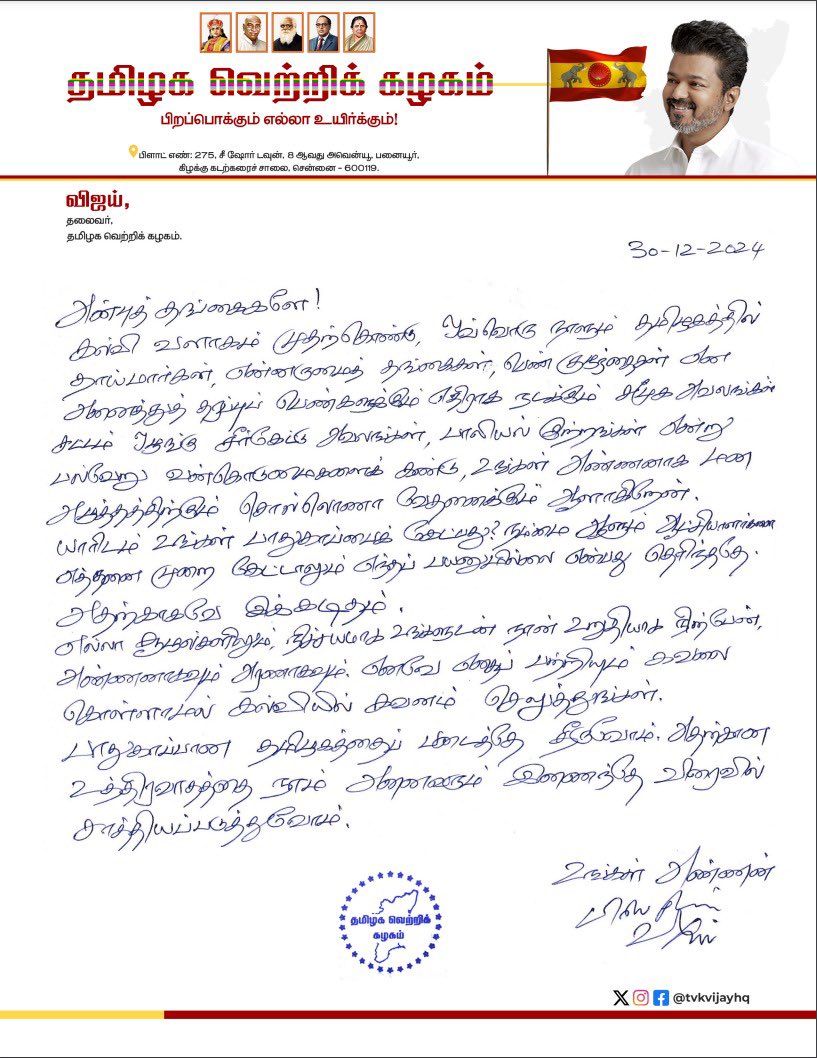 தமிழக வெற்றிக் கழகம்
பிறப்பொக்கும் எல்லா உயிர்க்கும்!
பிளாட் எண்: 275, சீ ஷோர் டவுன், 8 ஆவது அவென்யூ, பனையூர்,
கிழக்கு கடற்கரைச் சாலை, சென்னை - 600119.
விஜய்,
தலைவர்,
தமிழக வெற்றி கழகம்.
30-12-2024
அன்புத் தங்கைகளே!
கல்வி வளாகம் முதற்கொண்டு, ஒவ்வொரு நாளும் தமிழகத்தில்
தாய்மார்கள், என்னருமைத் தங்கைகள், பெண் குழந்தைகள் என
அனைத்துத் தரப்புப் பெண்களுக்கும் எதிராக நடக்கும் சமூக அவலங்கள்
சட்டம் ஒழுங்கு சீர்கேட்டு அவலங்கள், பாலியல் குற்றங்கள் என்று
பல்வேறு வன்கொடுமைகளைக் கண்டு, உங்கள் அண்ணனாக மன
அழுத்தத்திற்கும் சொல்லொணா வேதனைக்கும் ஆளாகிறேன்.
யாரிடம் உங்கள் பாதுகாப்பைக் கேட்பது? நம்மை ஆளும் ஆட்சியாளர்களை
எத்தனை முறை கேட்டாலும் எந்தப் பயனுமில்லை என்பது தெரிந்ததே.
அதற்காகவே இக்கடிதம்.
எல்லா சூழல்களிலும், நிச்சயமாக உங்களுடன் நான் உறுதியாக நிற்பேன்,
அண்ணனாகவும் அரணாகவும். எனவே எதைப் பற்றியும் கவலை
கொள்ளாமல் கல்வியில் கவனம் செலுத்துங்கள்.
பாதுகாப்பான தமிழகத்தைப் படைத்தே தீருவோம். அதற்கான
உத்திரவாதத்தை நாம் அனைவரும் இணைந்தே விரைவில்
சாத்தியப்படுத்துவோம்.
உங்கள் அண்ணன்
தமிழக வெற்றிக்
கழகம்
@tvkvijayhq